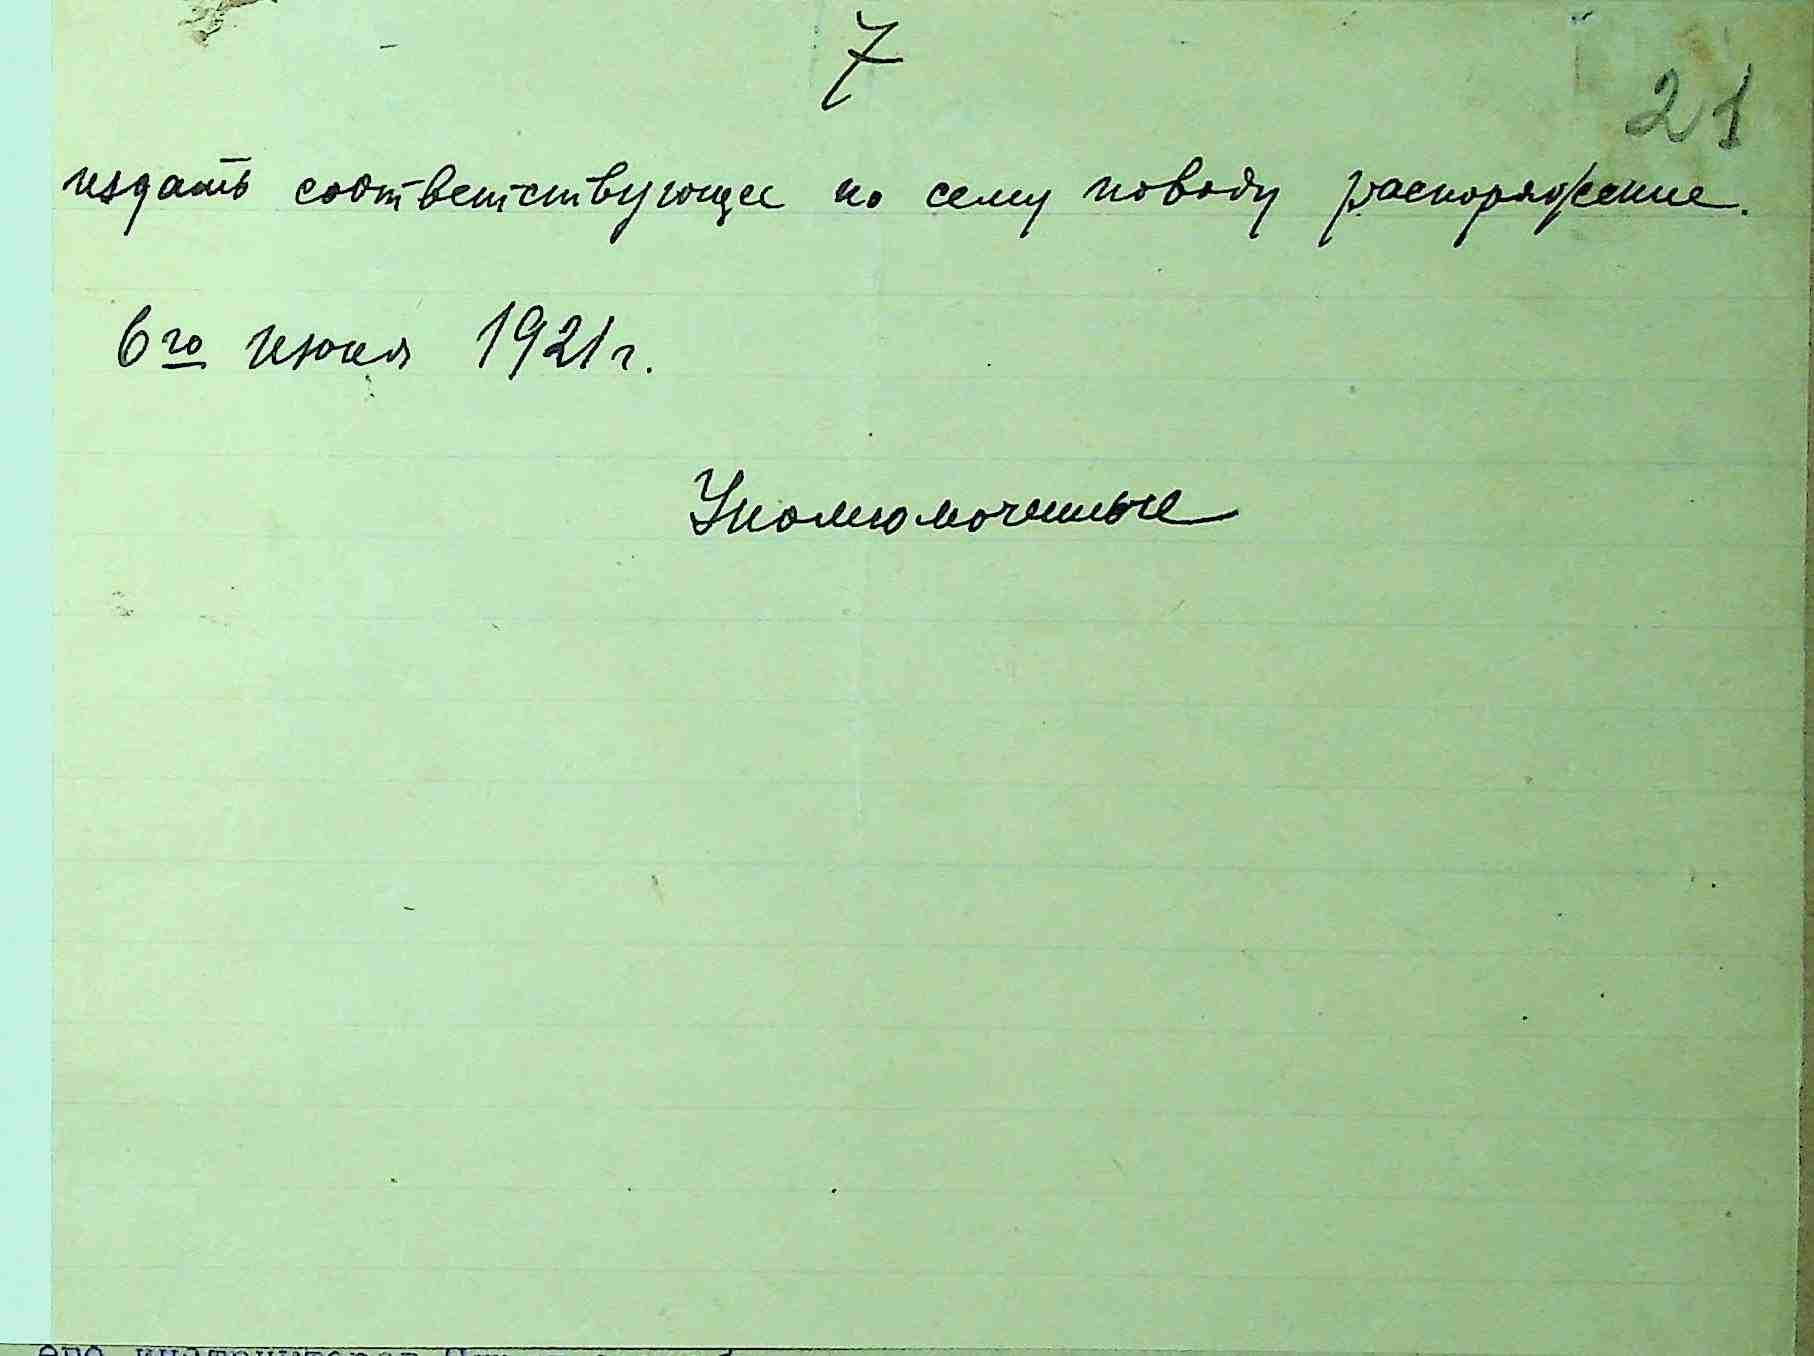 7
21
издать соответствующее по сему поводу распоряжение.
6го июня 1921 г.
Уполномоченные